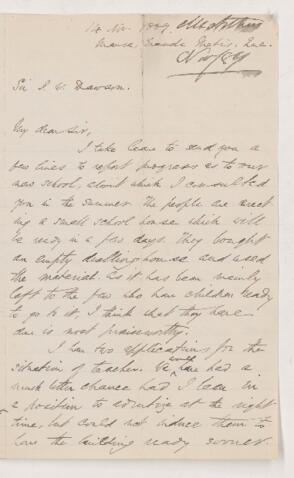 14 Nov. 1889.
Manse, Grande Metis, Que.
Sir J. W. Dawson.
My dear Sir,
I take leave to send you a
few lines to report progress as to our
new school, about which I consulted
you in the summer. The people are erect-
ing a small school house which will
be ready in a few days. They bought
an empty dwelling house and used
the material. As it has been mainly
left to the few who have children ready
to go to it, I think what they have
done is most praiseworthy.
I have two applications for the
situation of teacher. We could have had a
much better chance had I been in
a position to advertize at the right
time, but could not induce them to
have the building ready sooner.